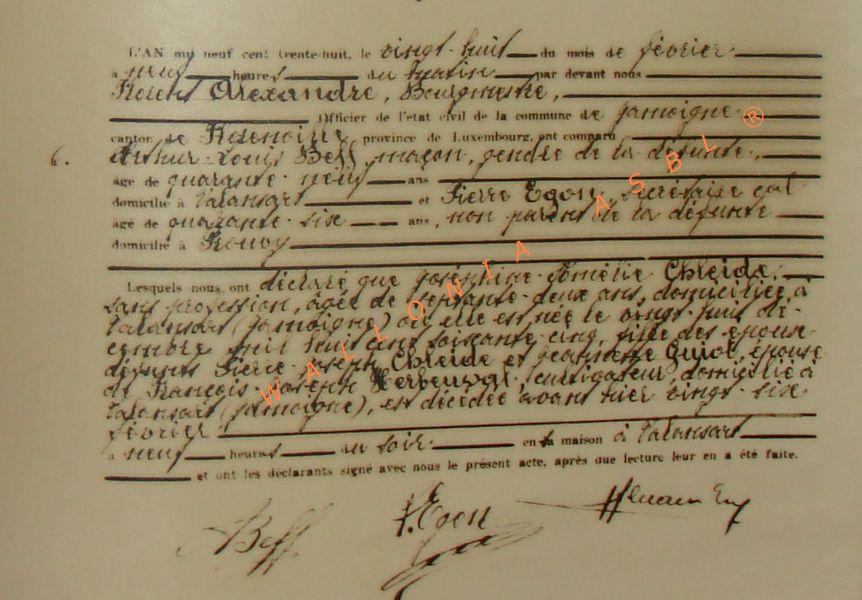 L'AN mil neuf cent trente-huit, le vingt-huit du mois de février
à neuf heures du matin par devant nous
Alexandre, Bourgmestre,
Officier de l'état civil de la commune de Jamoigne
canton de Florenville, province de Luxembourg, ont comparu
6. Arthur-Louis Beff, maçon, gendre de la défunte,
âgé de quarante-neuf ans
domicilié à Valansart et Pierre Egon, secrétaire cal
âgé de quarante-six ans, non parent de la défunte
domicilié à Prouvy
Lesquels nous ont déclaré que Joséphine-Amélie Chleide,
sans profession, âgée de septante-deux ans, domiciliée à
Valansart (Jamoigne) où elle est née le vingt-huit dé-
cembre mil huit cent soixante-cinq, fille des époux
défunts Pierre-Joseph Chleide et Jeannette Guiot, épouse
de François-Joseph, cultivateur, domicilié à
Valansart (Jamoigne), est décédée avant hier vingt-six
février
à neuf heures du soir en sa maison à Valansart
et ont les déclarants signé avec nous le présent acte, après que lecture leur en a été faite.
ABeff P.Egon
WALLONIA ASBL ®